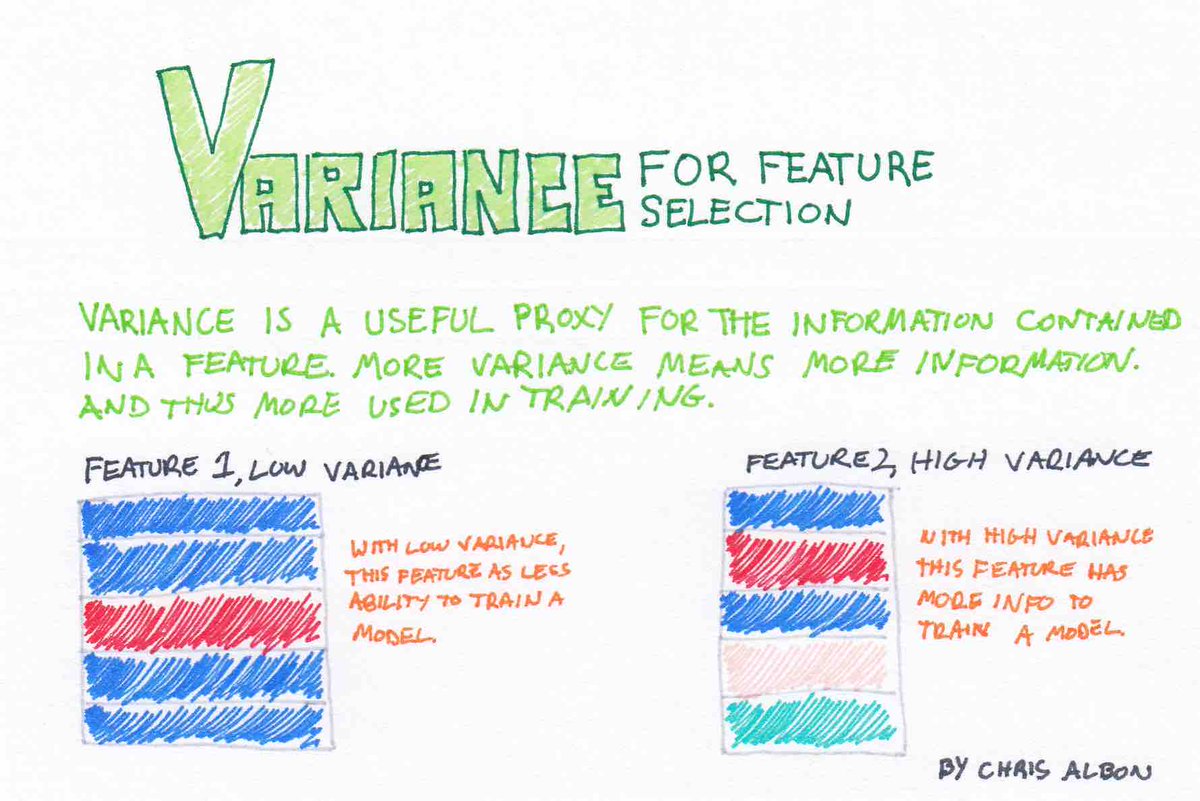 VARIANCE FOR FEATURE
SELECTION
VARIANCE IS A USEFUL PROXY FOR THE INFORMATION CONTAINED
IN A FEATURE. MORE VARIANCE MEANS MORE INFORMATION.
AND THUS MORE USED IN TRAINING.
FEATURE 1, LOW VARIANCE
WITH LOW VARIANCE,
THIS FEATURE AS LESS
ABILITY TO TRAIN A
MODEL.
FEATURE 2, HIGH VARIANCE
WITH HIGH VARIANCE
THIS FEATURE HAS
MORE INFO TO
TRAIN A MODEL.
BY CHRIS ALBON